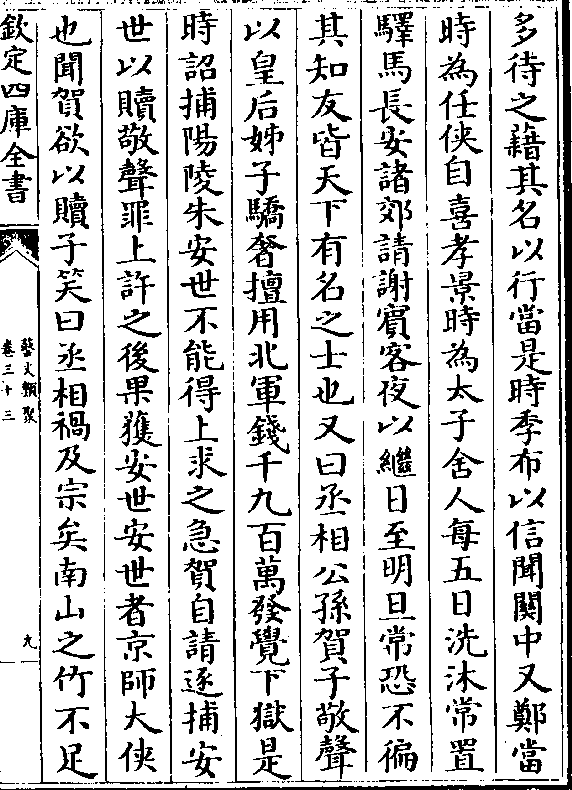 多待之藉其名以行當是時季布以信聞關中又鄭當
時為任俠自喜孝景時為太子舍人每五日洗沐常置
驛馬長安諸郊請謝賓客夜以繼日至明旦常恐不徧
其知友皆天下有名之士也又曰丞相公孫賀子敬聲
以皇后姊子驕奢擅用北軍錢千九百萬發覺下獄是
時詔捕陽陵朱安世不能得上求之急賀自請逐捕安
世以贖敬聲罪上許之後果獲安世安世者京師大俠
也聞賀欲以贖子笑曰丞相禍及宗矣南山之竹不足
欽定四庫全書
藝文類聚
卷三十三
九